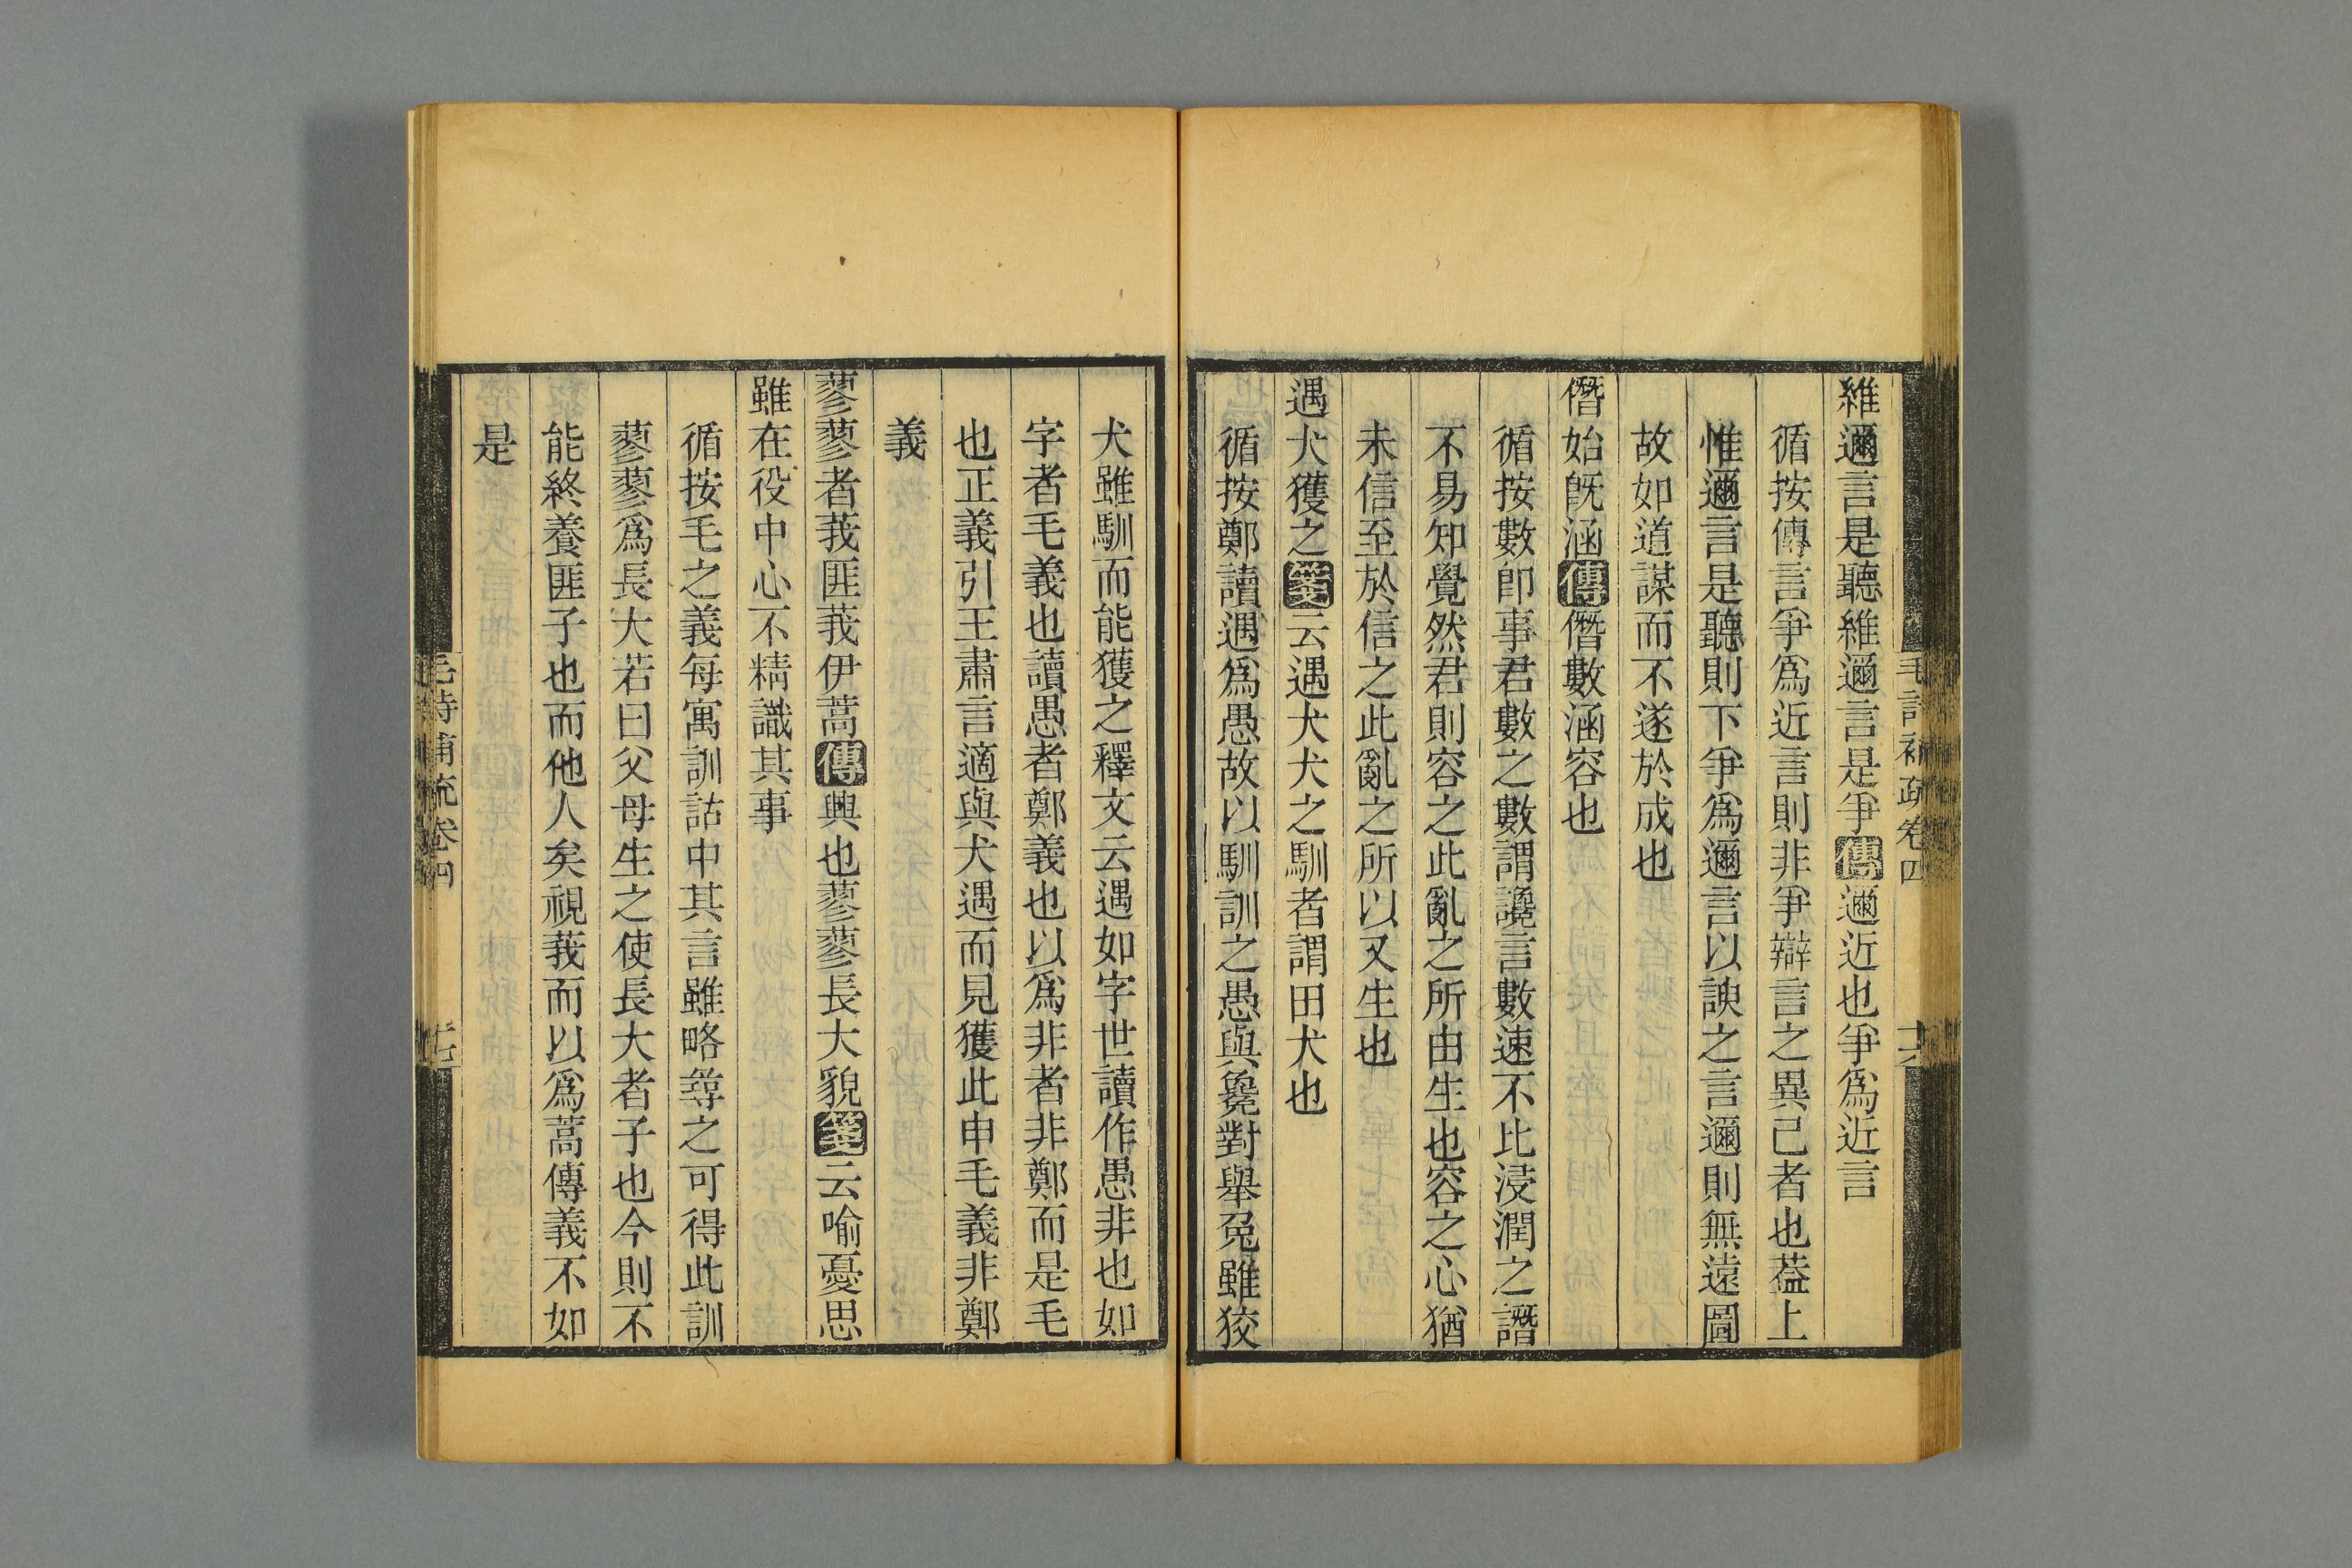 維邇言是聽維邇言是爭傳邇近也爭爲近言
循按傳言爭爲近言則非爭辯言之異己者也葢上
惟邇言是聽則下爭爲邇言以諛之言邇則無遠圖
故如道謀而不遂於成也
僭始旣涵傳僭數涵容也
循按數卽事君數之數謂讒言數速不比浸潤之譖
不易知覺然君則容之此亂之所由生也容之心猶
未信至於信之此亂之所以又生也
遇犬獲之箋云遇犬犬之馴者謂田犬也
循按鄭讀遇爲愚故以馴訓之愚與毚對舉兔雖狡
犬雖馴而能獲之釋文云遇如字世讀作愚非也如
字者毛義也讀愚者鄭義也以爲非者非鄭而是毛
也正義引王肅言適與犬遇而見獲此申毛義非鄭
義
蓼蓼者莪匪莪伊蒿傳興也蓼蓼長大貌箋云喻憂思
雖在役中心不精識其事
循按毛之義每寓訓詁中其言雖略㝷之可得此訓
蓼蓼爲長大若曰父母生之使長大者子也今則不
能終養匪子也而他人矣視莪而以爲蒿傳義不如
是
毛詩補疏卷四